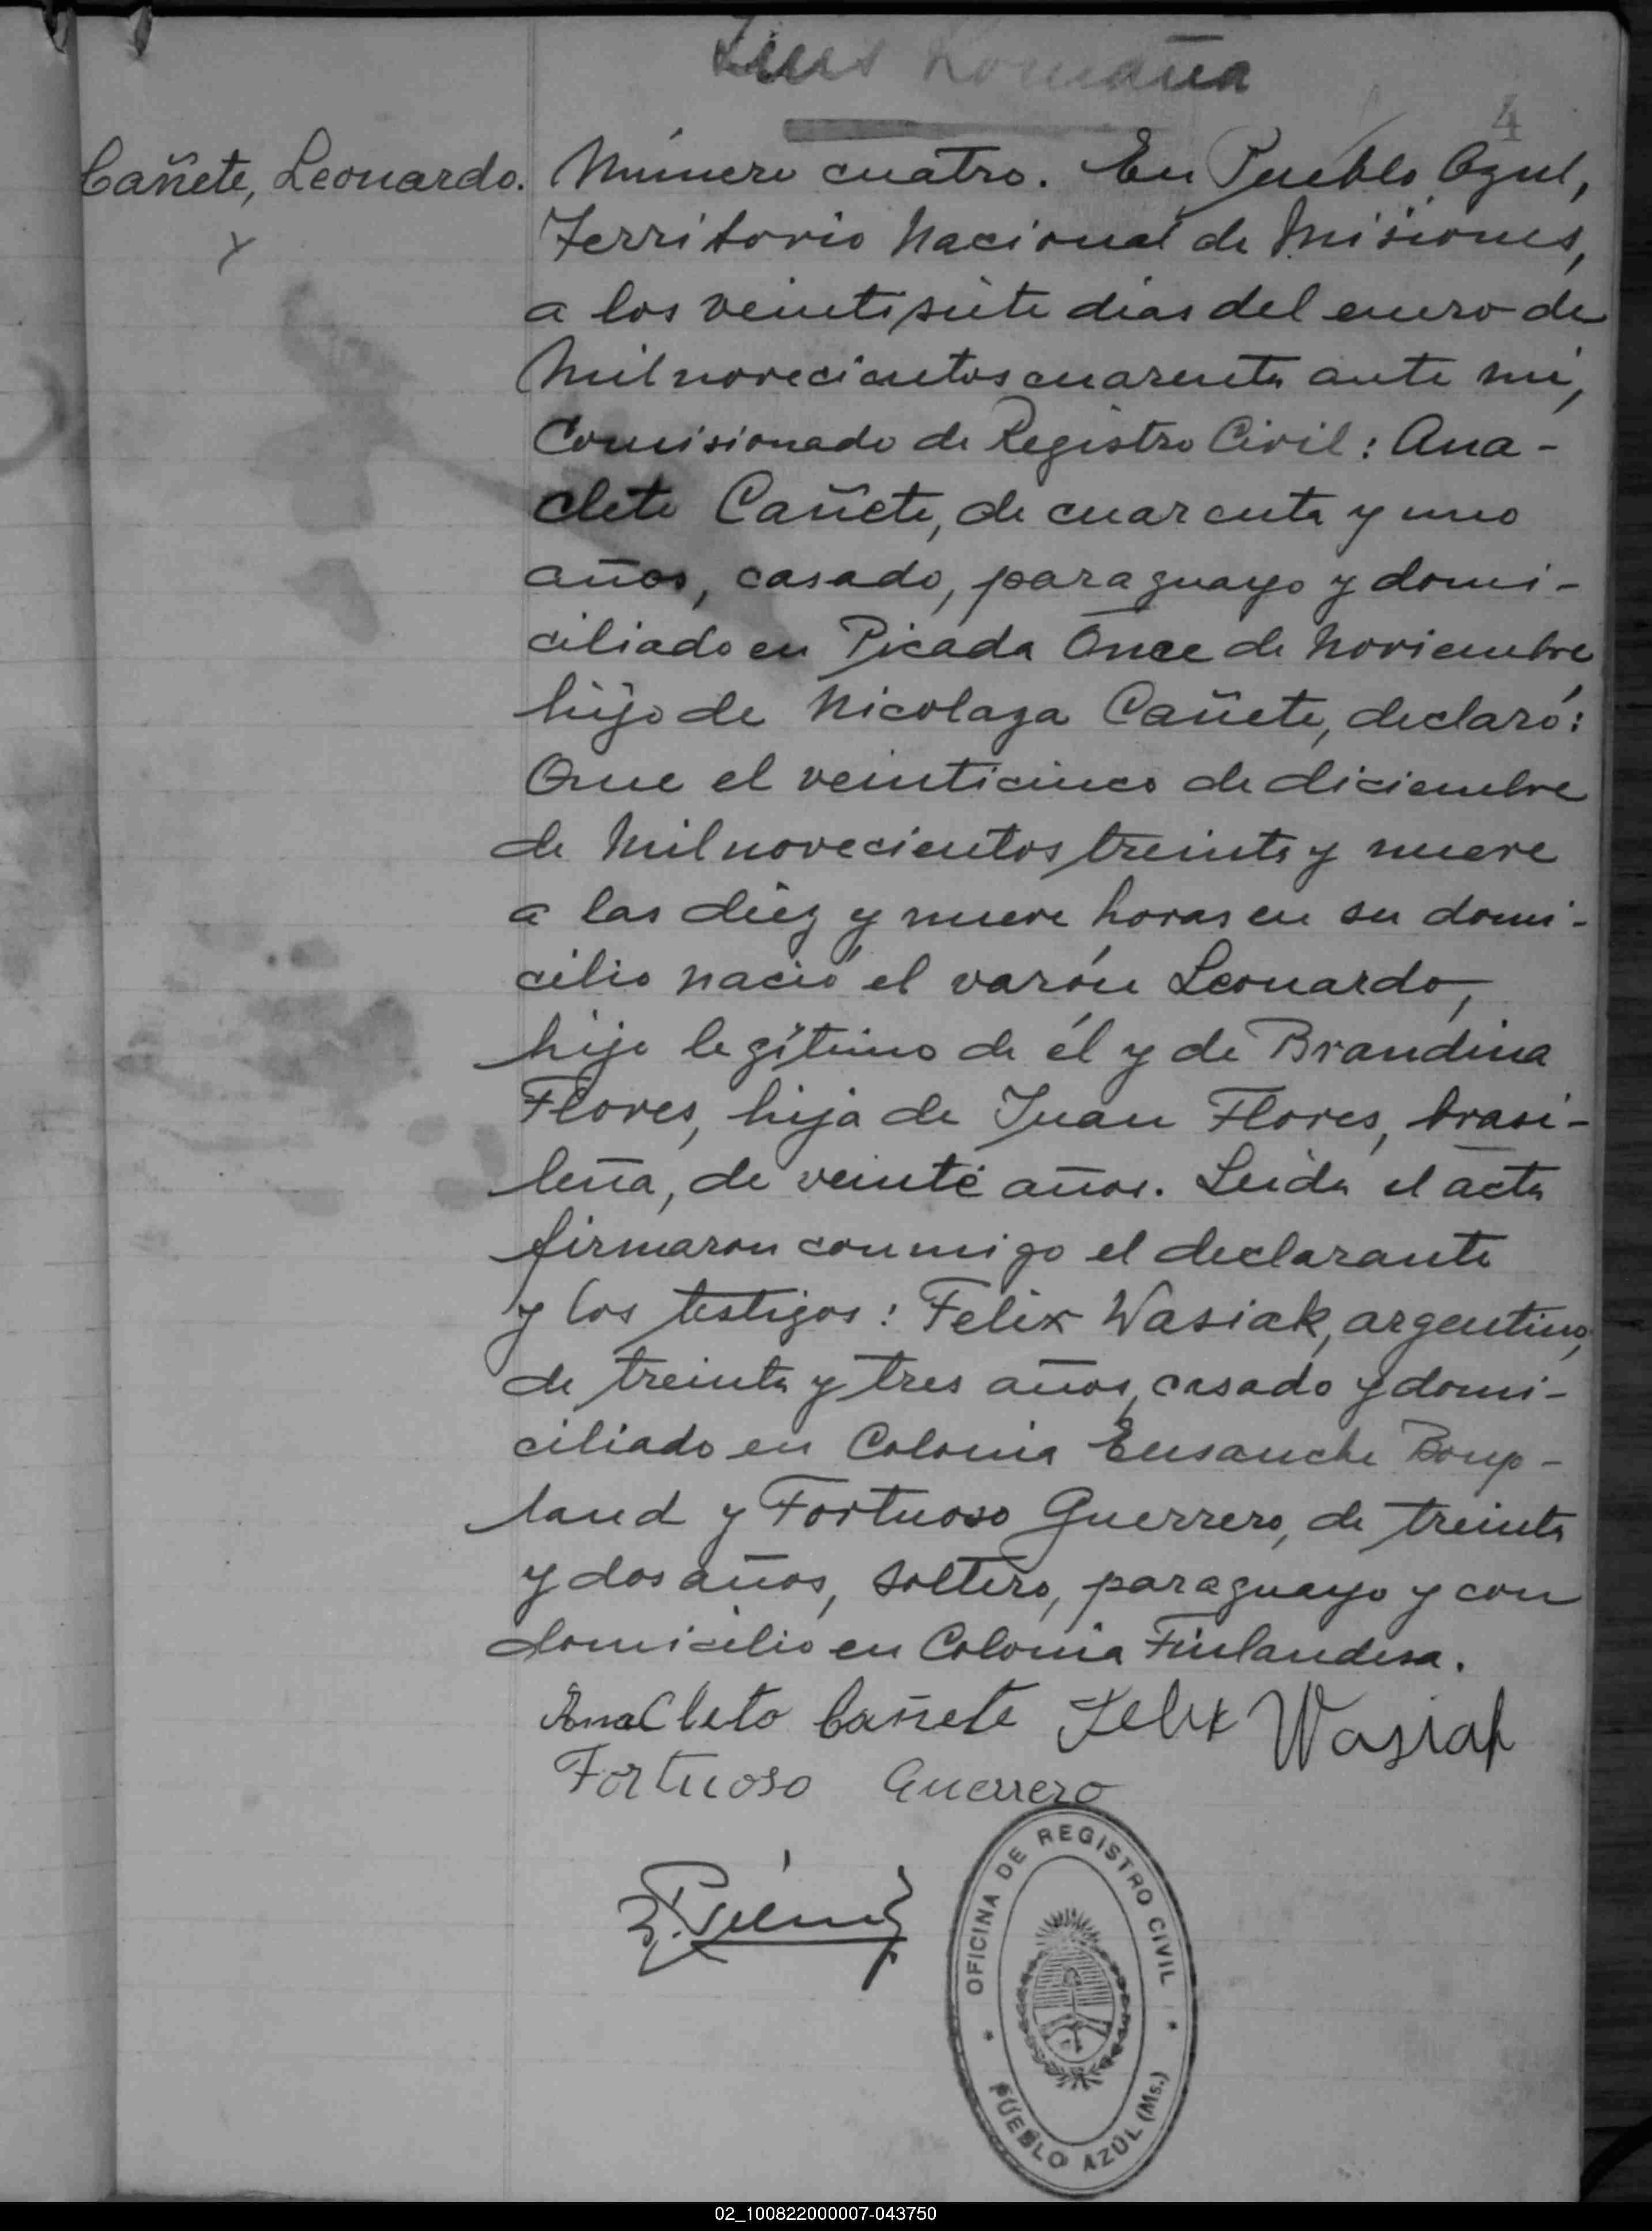 Luis Romaña
4
Cañete, Leonardo.
Número cuatro. En Pueblo Azul,
Territorio Nacional de Misiones,
a los veintisiete días del enero de
Mil novecientos cuarenta ante mí,
Comisionado de Registro Civil: Ana-
cleto Cañete, de cuarenta y uno
años, casado, paraguayo y domi-
ciliado en Picada Once de Noviembre,
hijo de Nicolaza Cañete, declaró:
Que el veinticinco de diciembre
de Mil novecientos treinta y nueve
a las diez y nueve horas en su domi-
cilio nació el varón Leonardo,
hijo legítimo de él y de Brandina
Flores, hija de Juan Flores, brasi-
leña, de veinte años. Leida el acta
firmaron conmigo el declarante
y los testigos: Felix Wasiak, argentino,
de treinta y tres años, casado y domi-
ciliado en Colonia Ensanche Bonp-
land y Fortuoso Guerrero, de treinta
y dos años, soltero, paraguayo y con
domicilio en Colonia Finlandesa.
AnaCleto Cañete Felix Wasiak
Fortuoso Guerrero
OFICINA DE REGISTRO CIVIL
* PUEBLO AZÚL (Ms.) *
02_100822000007-043750